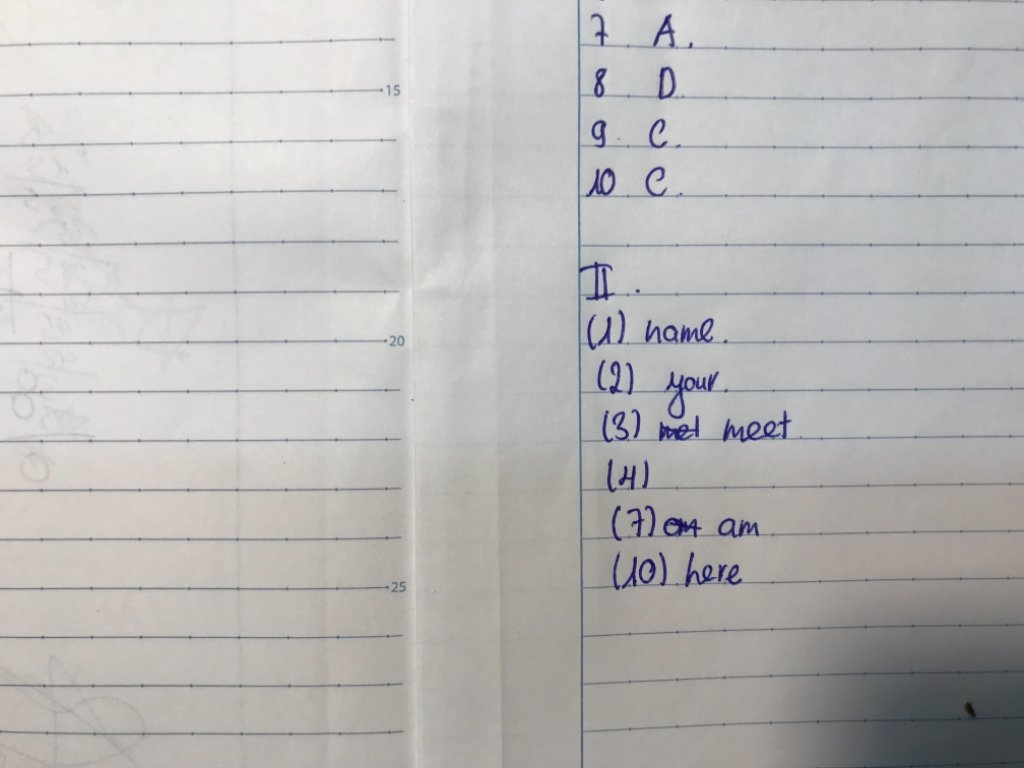 15
20
25
7 A.
8 D
9. C.
10 C.
II.
(1) name.
(2) your.
(3) meet
(4)
(7) am
(10) here